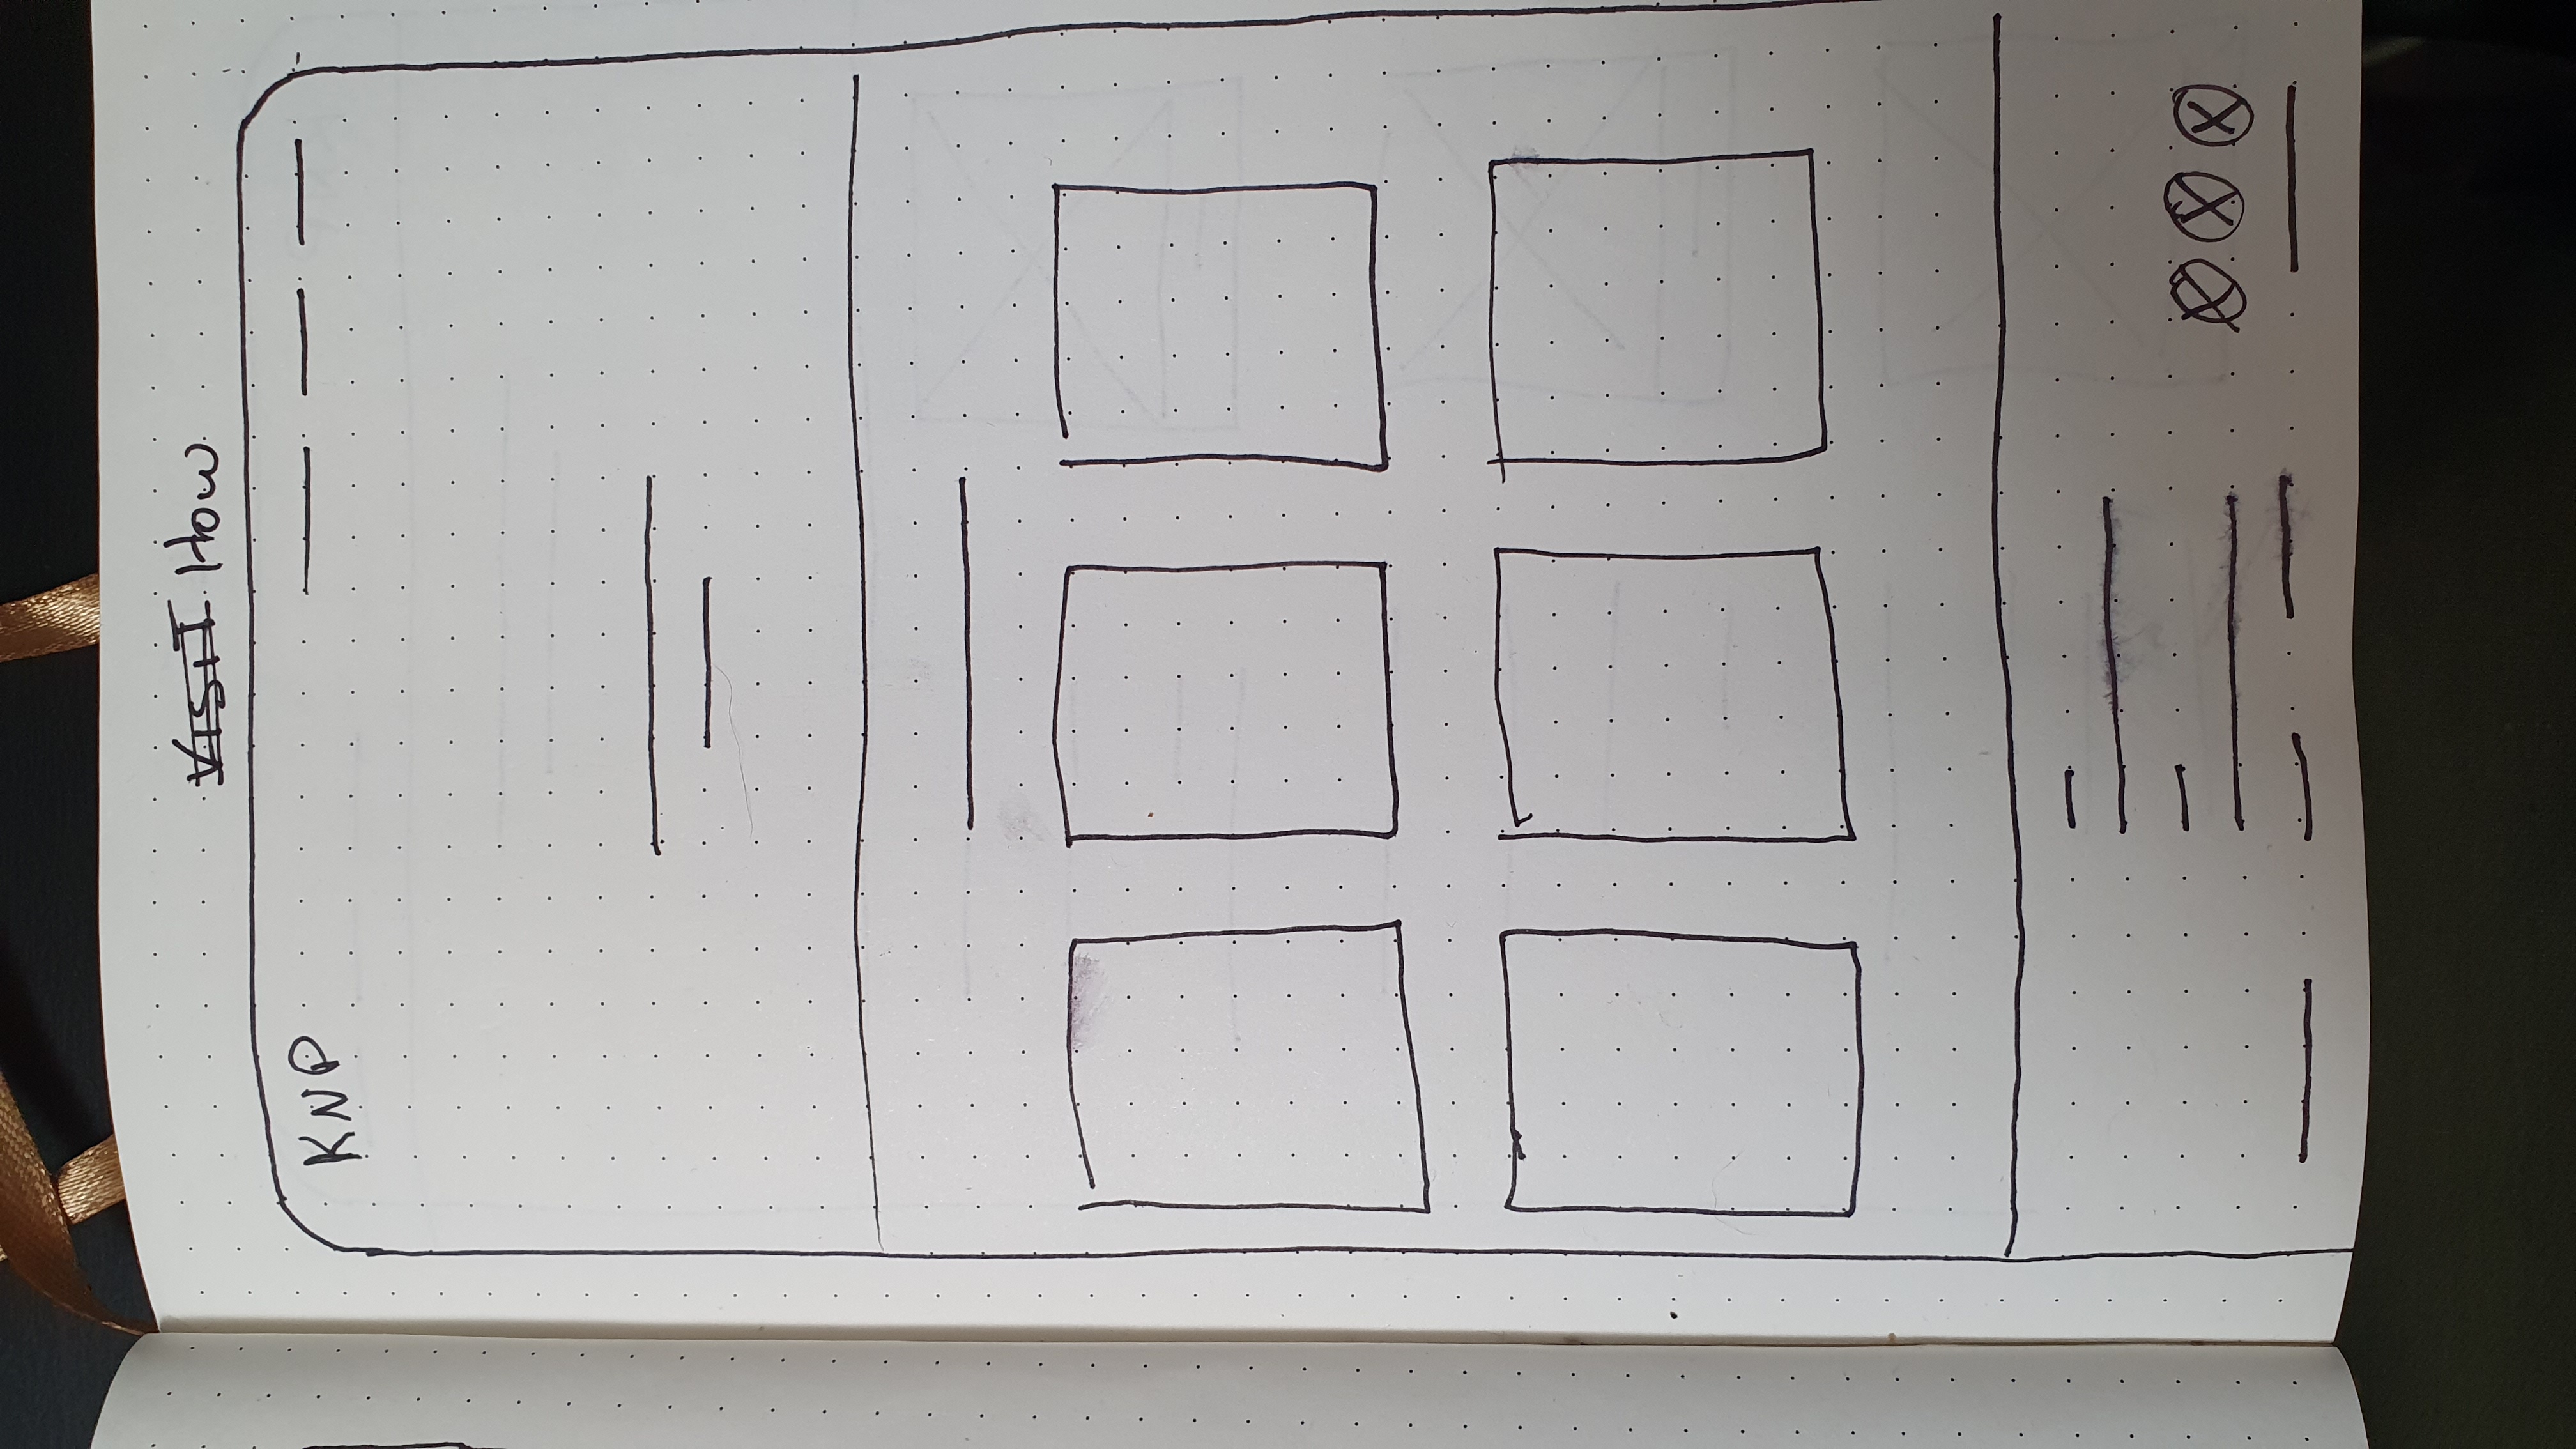 VISIT How
KNP